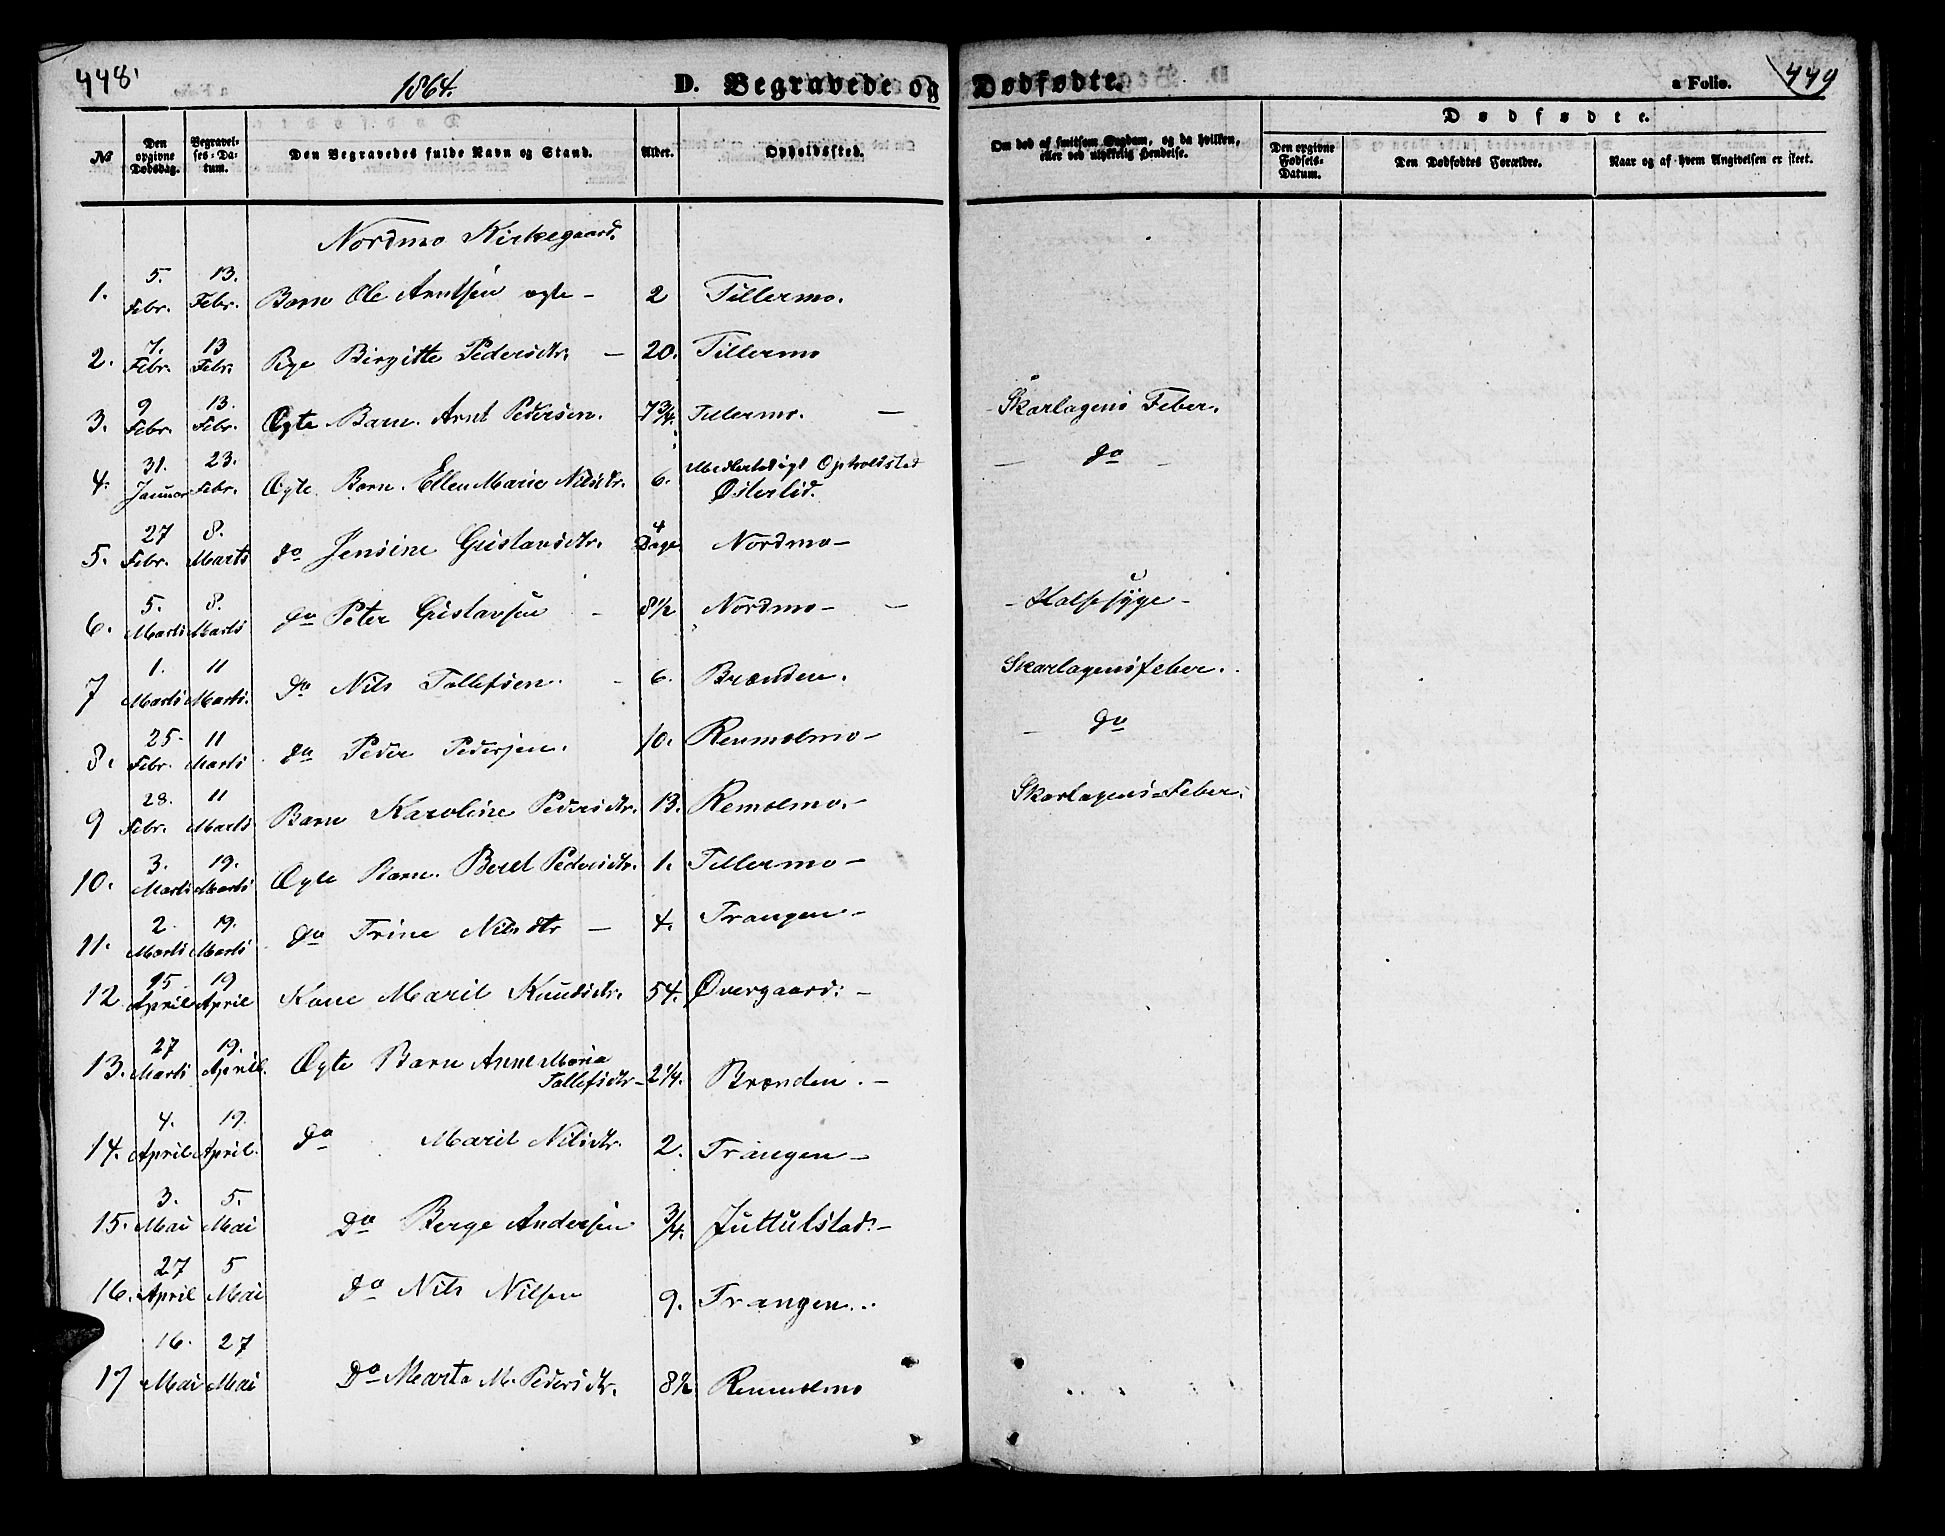 448
1864.
D. Begravede og Dødfødte.
a Folio.
449
No
Den opgivne Dødsdag.
Begravelses-Datum.
Den Begravedes fulde Navn og Stand.
Alder.
Opholdssted.
Om død af smitsom Sygdom, og da hvilken, eller ved ulykkelig Hendelse.
Dødfødte.
Den opgivne Fødsels-Datum.
Den Dødfødtes Forældre.
Naar og af hvem Angivelsen er skeet.
Nordmo Kirkegaard.
1. 5. Febr. 13. Febr. Barn Ole Arntsen ægte - 2 Tillermo.
2. 7. Febr. 13 Febr. Pige Birgitte Pedersdtr. - 20. Tillermo
3. 9 Febr. 13. Febr. Ægte Barn. Arnt Pedersen. 7 3/4. Tillermo. - - Skarlagens Feber.
4. 31. Januar 23. Febr. Ægte Barn. Ellen Marie Nilsdtr. 6. Midlertidigt Opholdsted Østerlid. - do -
5. 27 Febr. 8. Marts do Jensine Gustavsdtr. 4 Dage Nordmo -
6. 5. Marts 8. Marts do Peter Gustavsen - 8 1/2 Nordmo - - - Halssyge -
7 1. Marts 11 Marts. do Nils Tollefsen. - 6. Brænden. Skarlagensfeber.
8. 25. Febr. 11 Marts do Peder Pedersen. 10. Renmolmo - - do
9 28. Febr. 11 Marts Barn Karoline Pedersdtr. 13. Remolmo. - Skarlagens-Feber.
10. 3. Marts 19. Marts Ægte Barn. Beret Pedersdtr. 1. Tillermo -
11. 2. Marts 19. Marts do Trine Nilsdtr - 4. Trangen -
12. 15. April 19 April Kone Marit Knudsdtr. 54. Øvergaard. -
13. 27 Marts 19. April. Ægte Barn Anne Maria Tollefsdtr - 2 1/4. Brænden. -
14. 4. April 19. April. do Marit Nilsdtr. 2. Trangen -
15. 3. Mai 5. Mai Do Berge Andersen 3/4. Juttulstad. -
16. 27 April 5 Mai do Nils Nilsen 9. Trangen.
17 16. Mai 27 Mai Do Marta M. Pedersdtr. 8 1/2 Renmolmo